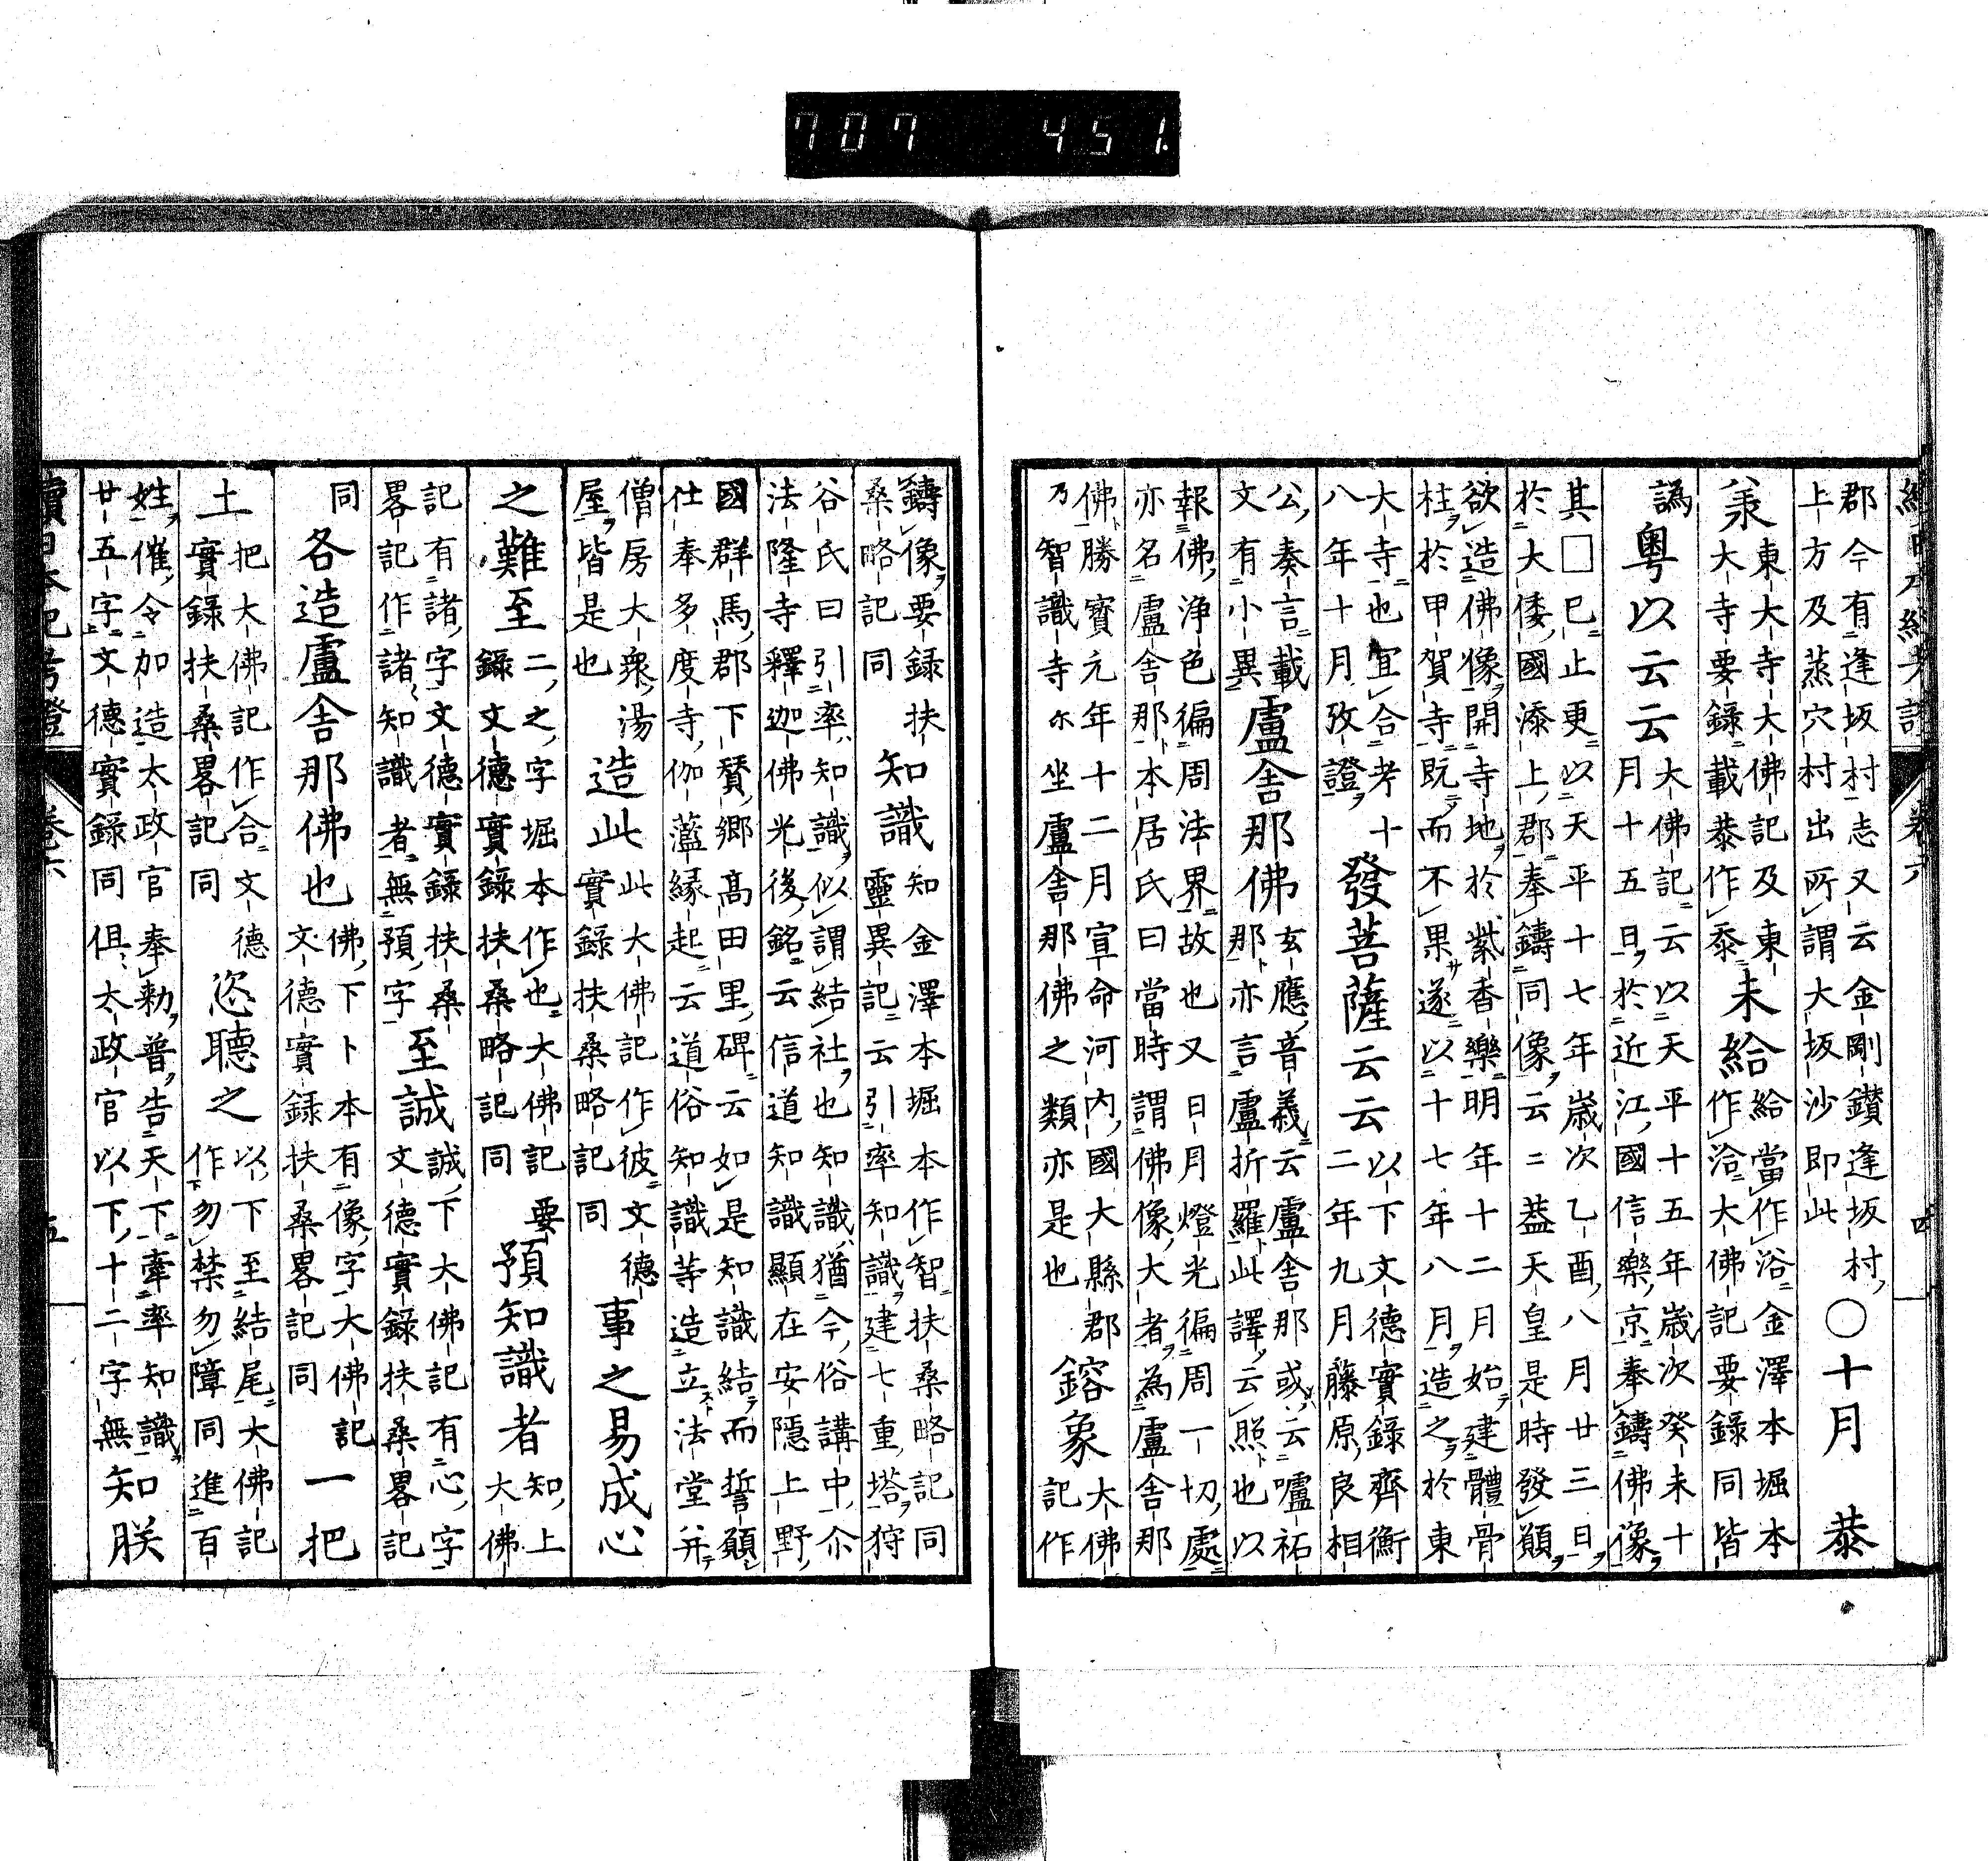 707 451
郡今有逢坂村志又云金剛鑚逢坂村
上方及蒸穴村出所謂大坂沙即此
○十月 恭
東大寺大佛記及東
大寺要録載恭作忝
未給
給當作浴金澤本堀本
作洽大佛記要録同皆
譌
粤以云云
大佛記云以天平十五年歳次癸未十
月十五日於近江國信樂京奉鑄佛像
其□巳止更以天平十七年歳次乙酉八月廿三日
於大倭國添上郡奉鑄同像云云葢天皇是時發願
欲造佛像開寺地於紫香樂明年十二月始建體骨
柱於甲賀寺既而不果遂以十七年八月造之於東
大寺也宜合考十
八年十月攷證
發菩薩云云
以下文德實錄齊衡
二年九月藤原良相
公奏言載
文有小異
盧舍那佛
玄應音義云盧舍那或云嚧祐
那亦言盧折羅此譯云照也以
報佛浄色徧周法界故也又日月燈光徧周一切處
亦名盧舍那本居氏曰當時謂佛像大者為盧舍那
佛勝寶元年十二月宣命河内國大縣郡
乃智識寺尓坐盧舎那佛之類亦是也
鎔象
大佛
記作
鑄像要録扶
桑略記同
知識
知金澤本堀本作智扶桑略記同
靈異記云引率知識建七重塔狩
谷氏曰引率知識似謂結社也知識猶今俗講中尒
法隆寺釋迦佛光後銘云信道知識顯在安隱上野
國群馬郡下賛郷高田里碑云如是知識結而誓願
仕奉多度寺伽藍縁起云道俗知識等造立法堂并
僧房大衆湯
屋皆是也
造此
此大佛記作彼文德
實録扶桑略記同
事之易成心
之難至
二之字堀本作也大佛記要
錄文德實錄扶桑略記同
預知識者
知上
大佛
記有諸字文德實錄扶桑
畧記作諸知識者無預字
至誠
誠下大佛記有心字
文德實錄扶桑畧記
同
各造盧舎那佛也
佛下卜本有像字大佛記
文德實録扶桑畧記同
一把
土
把大佛記作合文德
實錄扶桑畧記同
恣聽之
以下至結尾大佛記
作勿禁勿障同進百
姓催令加造太政官奉勅普告天下牽率知識
廿五字文德實錄同但太政官以下十二字無
知朕
續日本紀考證
卷六
五